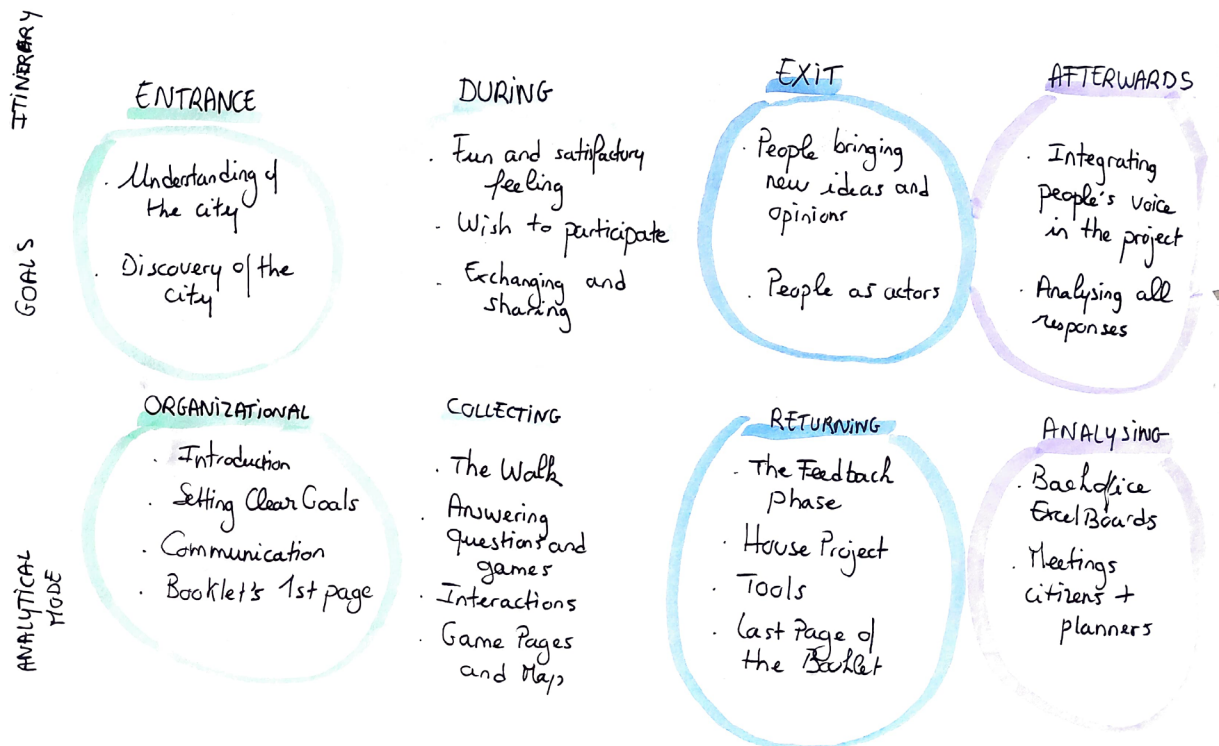 ITINERARY
ENTRANCE
DURING
EXIT
AFTERWARDS
GOALS
. Understanding of
the city
. Discovery of the
city
. Fun and satisfactory
feeling
. Wish to participate
. Exchanging and
sharing
. People bringing
new ideas and
opinions
. People as actors
. Integrating
people's voice
in the project
. Analysing all
responses
ANALYTICAL
MODE
ORGANIZATIONAL
. Introduction
. Setting Clear Goals
. Communication
. Booklet's 1st page
COLLECTING
. The Walk
. Answering
questions and
games
. Interactions
. Game Pages
and Map
RETURNING
. The Feedback
phase
. House Project
. Tools
. Last Page of
the Booklet
ANALYSING
. Backofice
Excel Boards
. Meetings
citizens +
planners